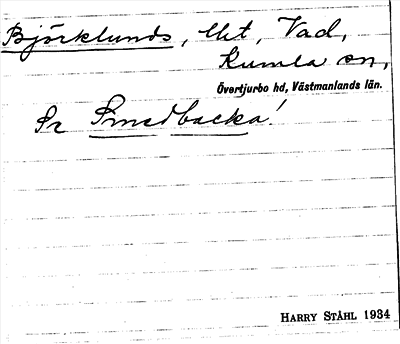 Björklunds, lht, Vad,
Kumla sn,
Övertjurbo hd, Västmanlands län.
Se Smedbacka!
HARRY STÅHL 1934